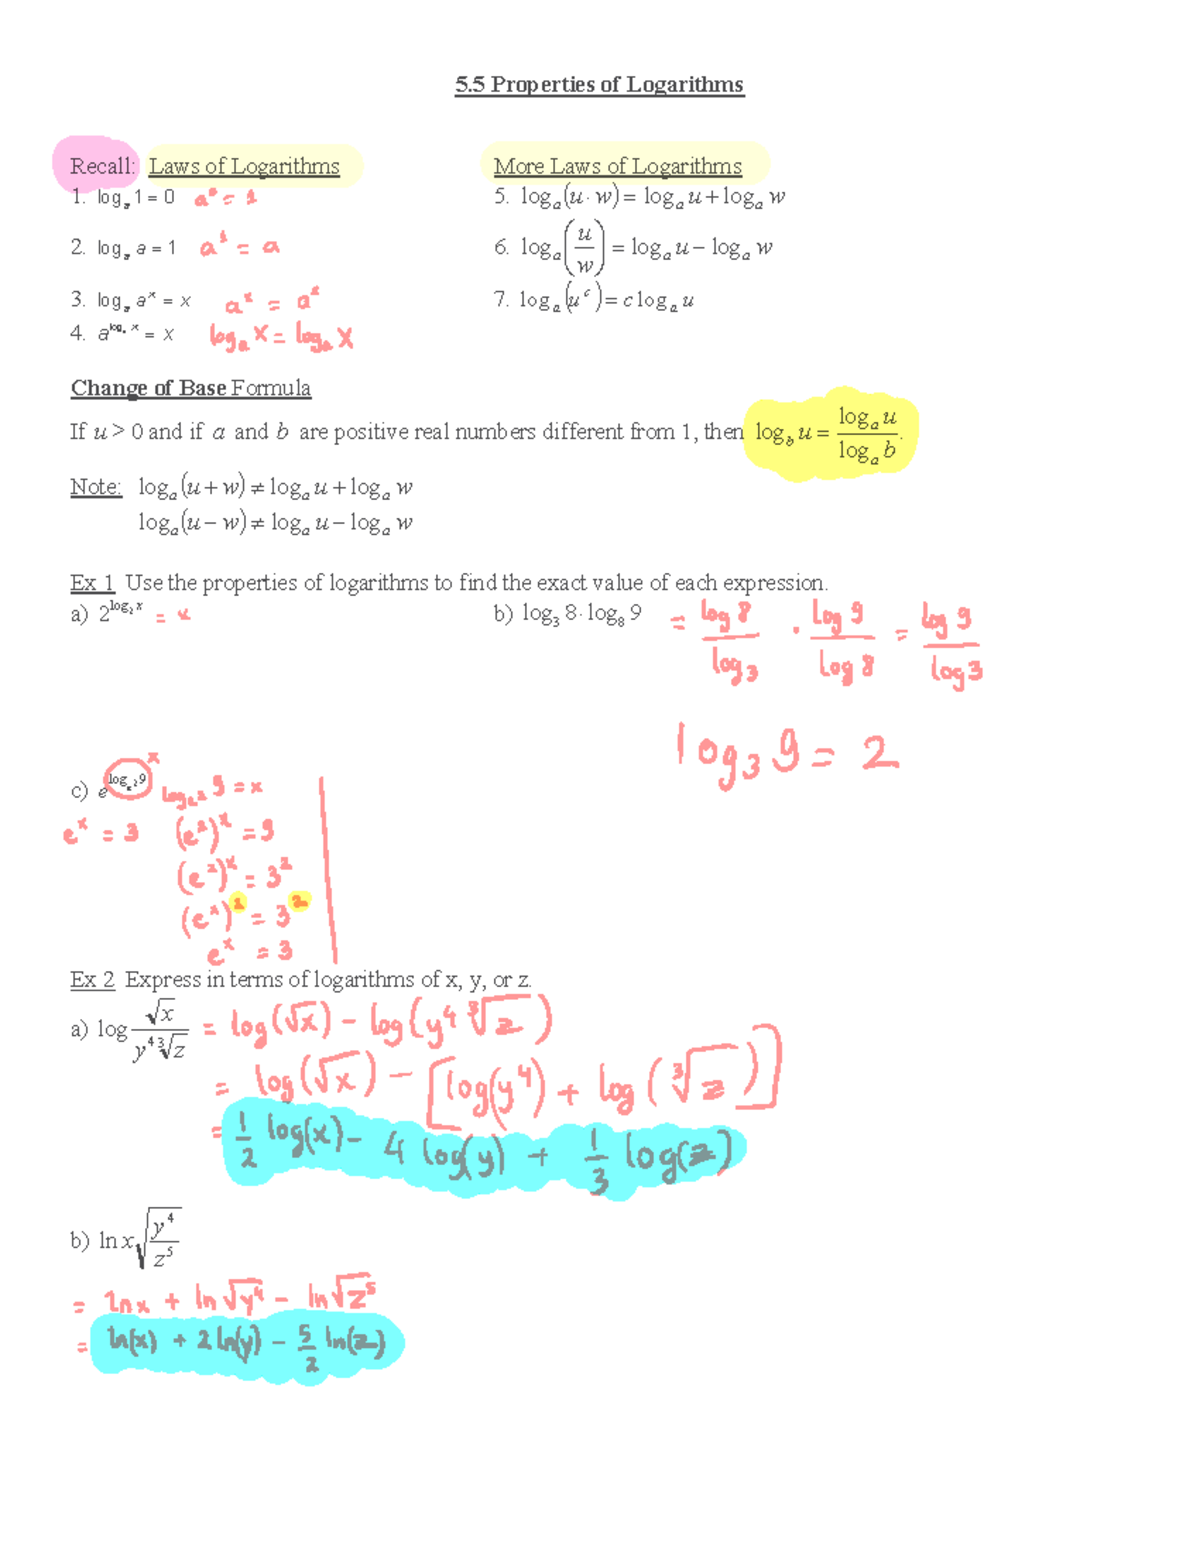 5.5 Properties of Logarithms
Recall: Laws of Logarithms
1. logₐ 1 = 0 a⁰ = 1
2. logₐ a = 1 a¹ = a
3. logₐ aˣ = x aˣ = aˣ
4. a^(logₐ x) = x logₐ x = logₐ x
More Laws of Logarithms
5. logₐ(u · w) = logₐ u + logₐ w
6. logₐ(u/w) = logₐ u − logₐ w
7. logₐ(uᶜ) = c logₐ u
Change of Base Formula
If u > 0 and if a and b are positive real numbers different from 1, then log_b u = logₐ u / logₐ b.
Note: logₐ(u + w) ≠ logₐ u + logₐ w
logₐ(u − w) ≠ logₐ u − logₐ w
Ex 1 Use the properties of logarithms to find the exact value of each expression.
a) 2^(log₂ x) = x
b) log₃ 8 · log₈ 9 = log 8 / log 3 · log 9 / log 8 = log 9 / log 3
log₃ 9 = 2
c) e^(log_(e²) 9) x log_(e²) 9 = x
eˣ = 3 (e²)ˣ = 9
(e²)ˣ = 3²
(eˣ)² = 3²
eˣ = 3
Ex 2 Express in terms of logarithms of x, y, or z.
a) log √x / (y⁴ ∛z) = log(√x) − log(y⁴ ∛z)
= log(√x) − [log(y⁴) + log(∛z)]
= 1/2 log(x) − 4 log(y) + 1/3 log(z)
b) ln x √(y⁴/z⁵)
= ln x + ln √y⁴ − ln √z⁵
= ln(x) + 2 ln(y) − 5/2 ln(z)